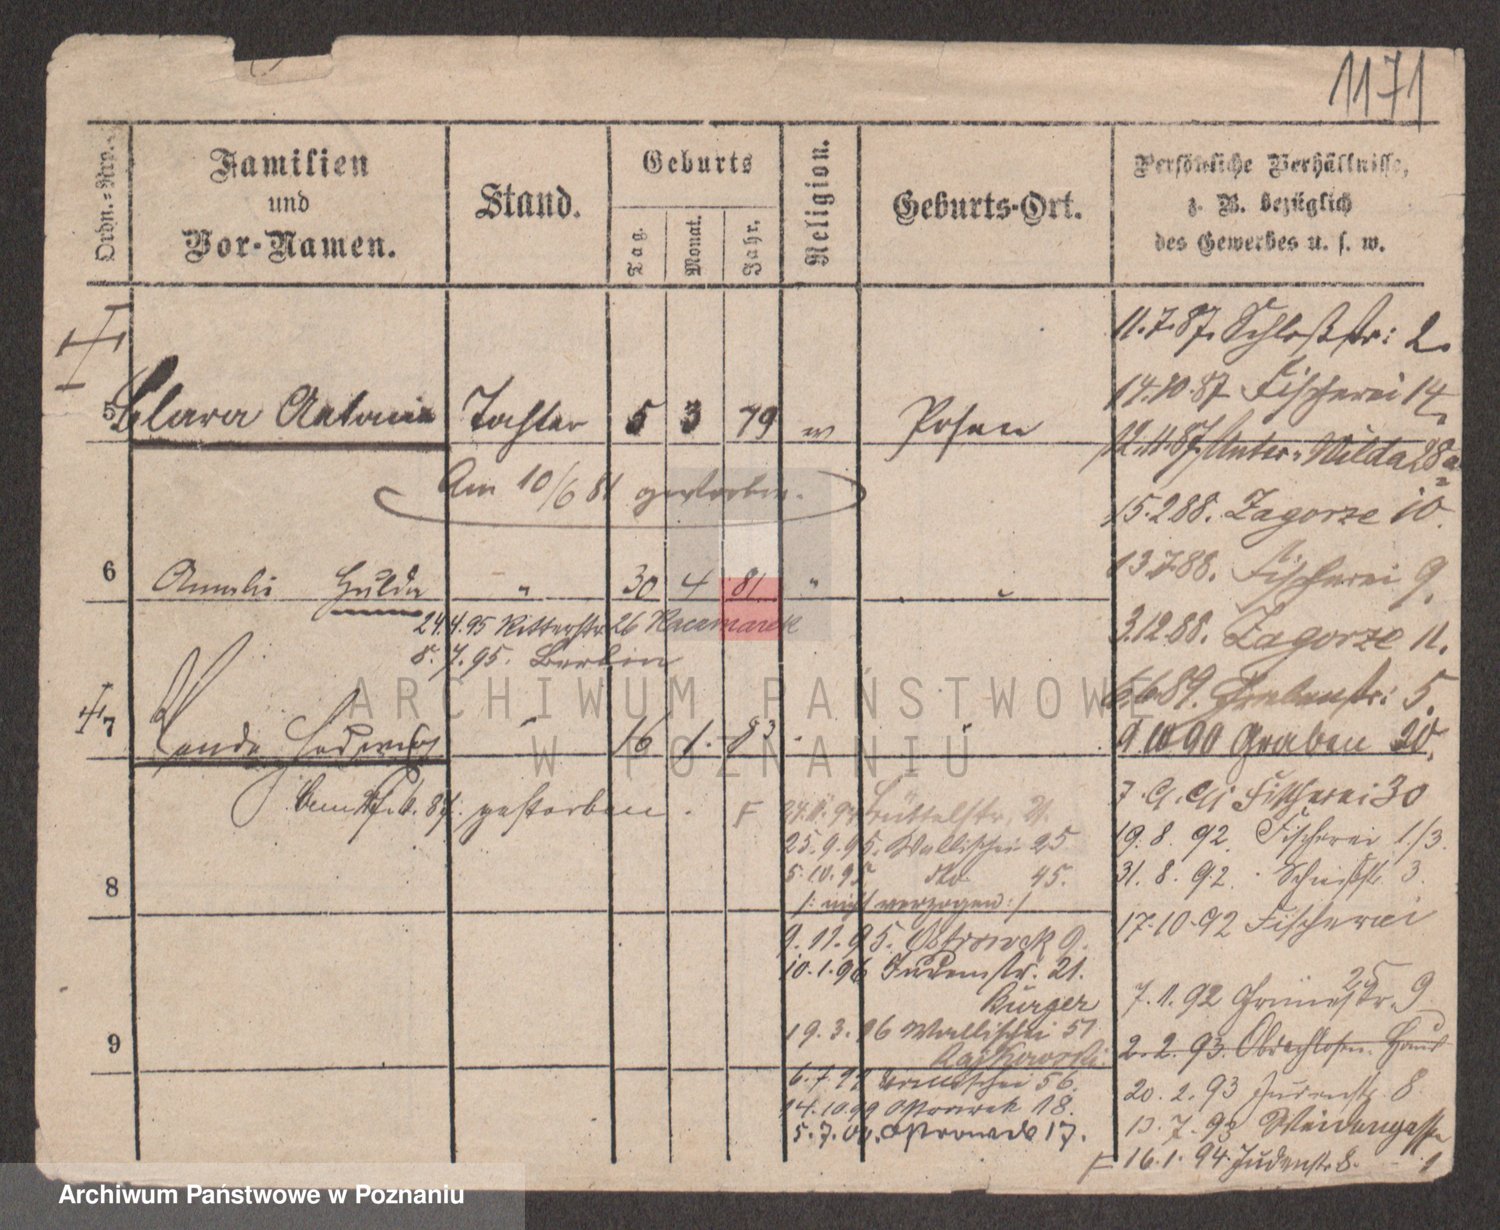 1171
Ordn.-Nro.
Familien
und
Vor-Namen.
Stand.
Geburts
Tag.
Monat.
Jahr.
Religion.
Geburts-Ort.
Persönliche Verhältnisse,
z. B. bezüglich
des Gewerbes u. s. w.
5 Clara Antonie Tochter 5 3 79 Posen
Am 10/6 81 gestorben.
6 Hulda " 30 4 81 "
24.4.95 Ritterstr 26 Kaczmarek
8.7.95. Berlin
7 Wanda Hedwig 16 1. 83
gestorben.
8
9
11.7.87. Schloßstr: 2.
14.10.87 Fischerei 14
12.11.87. Unter-Wilda 28a
15.2.88. Zagorze 10.
13.7.88. Fischerei 9.
3.12.88. Zagorze 11.
6.6.89. Grabenstr: 5.
9 10 90 Graben 20.
Fischerei 30
19.8.92. Fischerei 1/3.
31.8.92. 3.
17.10.92 Fischerei
25
7.1.92 9
2.2.93. Obdachlosen-
20.2.93 Judenstr. 8
7.93 Weidengasse
F 16.1.94. Judenstr 8. 1
F Büttelstr. 21.
25.9.95. Wallischei 25
5.10.95 dto 45.
/: nicht verzogen :/
9.11.95. Ostrowek 9.
10.1.96 Judenstr. 21.
Bürger
19.3.96 Wallischei 51
Rajkowski
56.
14.10.99 Ostrowek 18.
5.7.00. Ostrowek 17.
ARCHIWUM PAŃSTWOWE
W POZNANIU
Archiwum Państwowe w Poznaniu